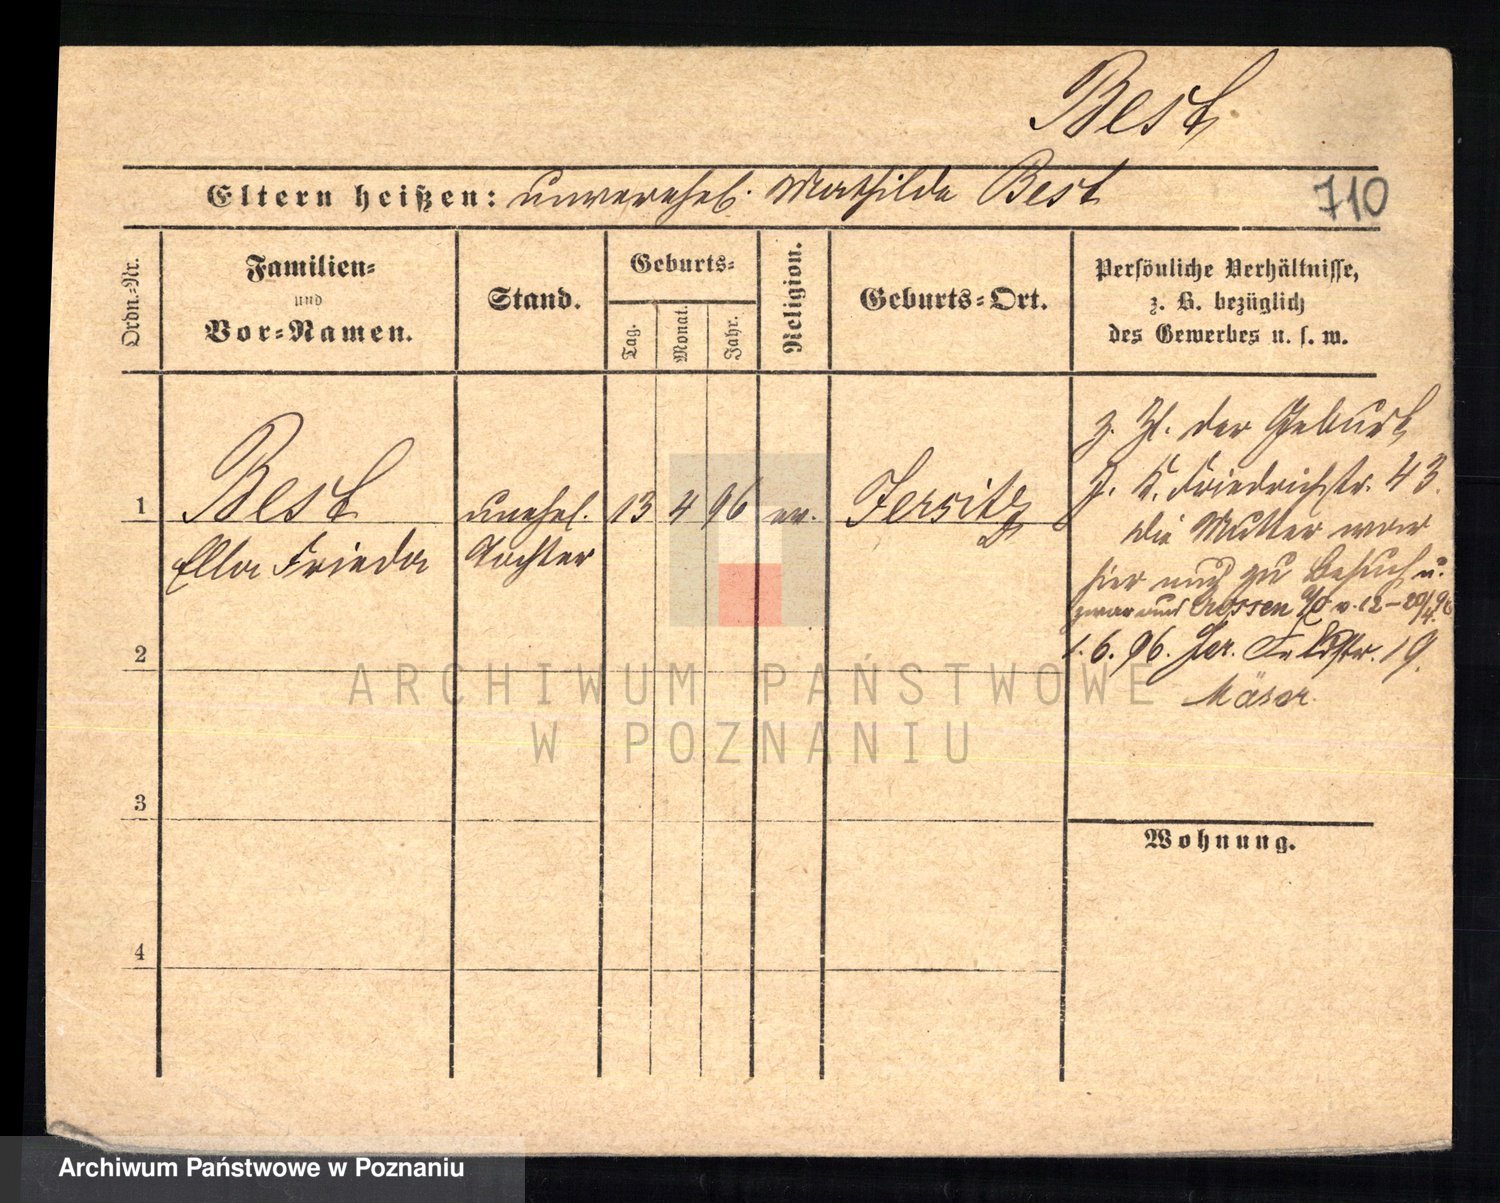 Best
Eltern heißen: unverehel. Mathilde Best
710
Ordn.-Nr.
Familien-
und
Vor-Namen.
Stand.
Geburts-
Tag.
Monat.
Jahr.
Religion.
Geburts-Ort.
Persönliche Verhältnisse,
z. B. bezüglich
des Gewerbes u. s. w.
1
Best
Ella Frieda
unehel.
Tochter
13
4
96
ev.
Jersitz
z. Zt. der Geburt
Friedrichstr. 43.
die Mutter war
hier nur zu Besuch u.
zwar aus Crossen a/O v. 12-20/4. 96
1. 6. 96. Jer. Feldstr. 19.
2
3
4
Wohnung.
ARCHIWUM PAŃSTWOWE
W POZNANIU
Archiwum Państwowe w Poznaniu